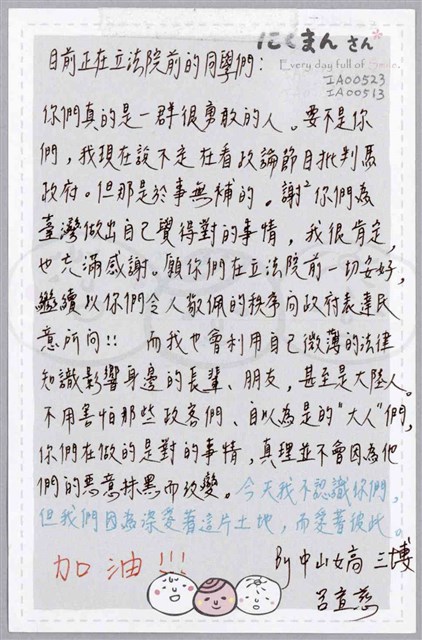 にくまんさん
Every day full of Smile.
IA00523
IA00513
目前正在立法院前的同學們：
你們真的是一群很勇敢的人。要不是你
們，我現在說不定在看政論節目批判馬
政府。但那是於事無補的。謝²你們為
臺灣做出自己覺得對的事情，我很肯定，
也充滿感謝。願你們在立法院前一切安好，
繼續以你們令人敬佩的秩序向政府表達民
意所向!! 而我也會利用自己微薄的法律
知識影響身邊的長輩、朋友，甚至是大陸人。
不用害怕那些政客們、自以為是的“大人”們，
你們在做的是對的事情，真理並不會因為他
們的惡意抹黑而改變。今天我不認識你們，
但我們因為深愛著這片土地，而愛著彼此。
加油!!! By 中山女高 三博
呂宜慈